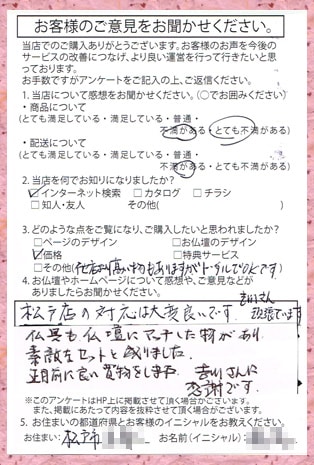 お客様のご意見をお聞かせください。
当店でのご購入ありがとうございます。お客様のお声を今後の
サービスの改善につなげ、より良い運営を行って行きたいと思
っております。
お手数ですがアンケートをご記入の上、ご返信ください。
1. 当店について感想をお聞かせください。(○でお囲みください)
・商品について
(とても満足している・満足している・普通・
不満がある・とても不満がある)
・配送について
(とても満足している・満足している・普通・
不満がある・とても不満がある)
2. 当店を何でお知りになりましたか?
☑インターネット検索 □カタログ □チラシ
□知人・友人 その他( )
3. どのような点をご覧になり、ご購入したいと思われましたか?
□ページのデザイン □お仏壇のデザイン
☑価格 □特典サービス
□その他(他店より高い物もありますがトータルでOKです)
4. お仏壇やホームページについて感想や、ご意見などが
ありましたらお聞かせください。
松戸店の対応は大変良いです。吉川さん
頑張ています
仏具も仏壇にマッチした物があり
素敵なセットと成りました。
正月前に良い買物をしました 吉川さんに
感謝です。
※このアンケートはHP上に掲載させて頂く場合がございます。
また、掲載にあたって内容を抜粋させて頂く場合がございます。
5. お住まいの都道府県とお客様のイニシャルをお教えください。
お住まい:松戸市 お名前(イニシャル):